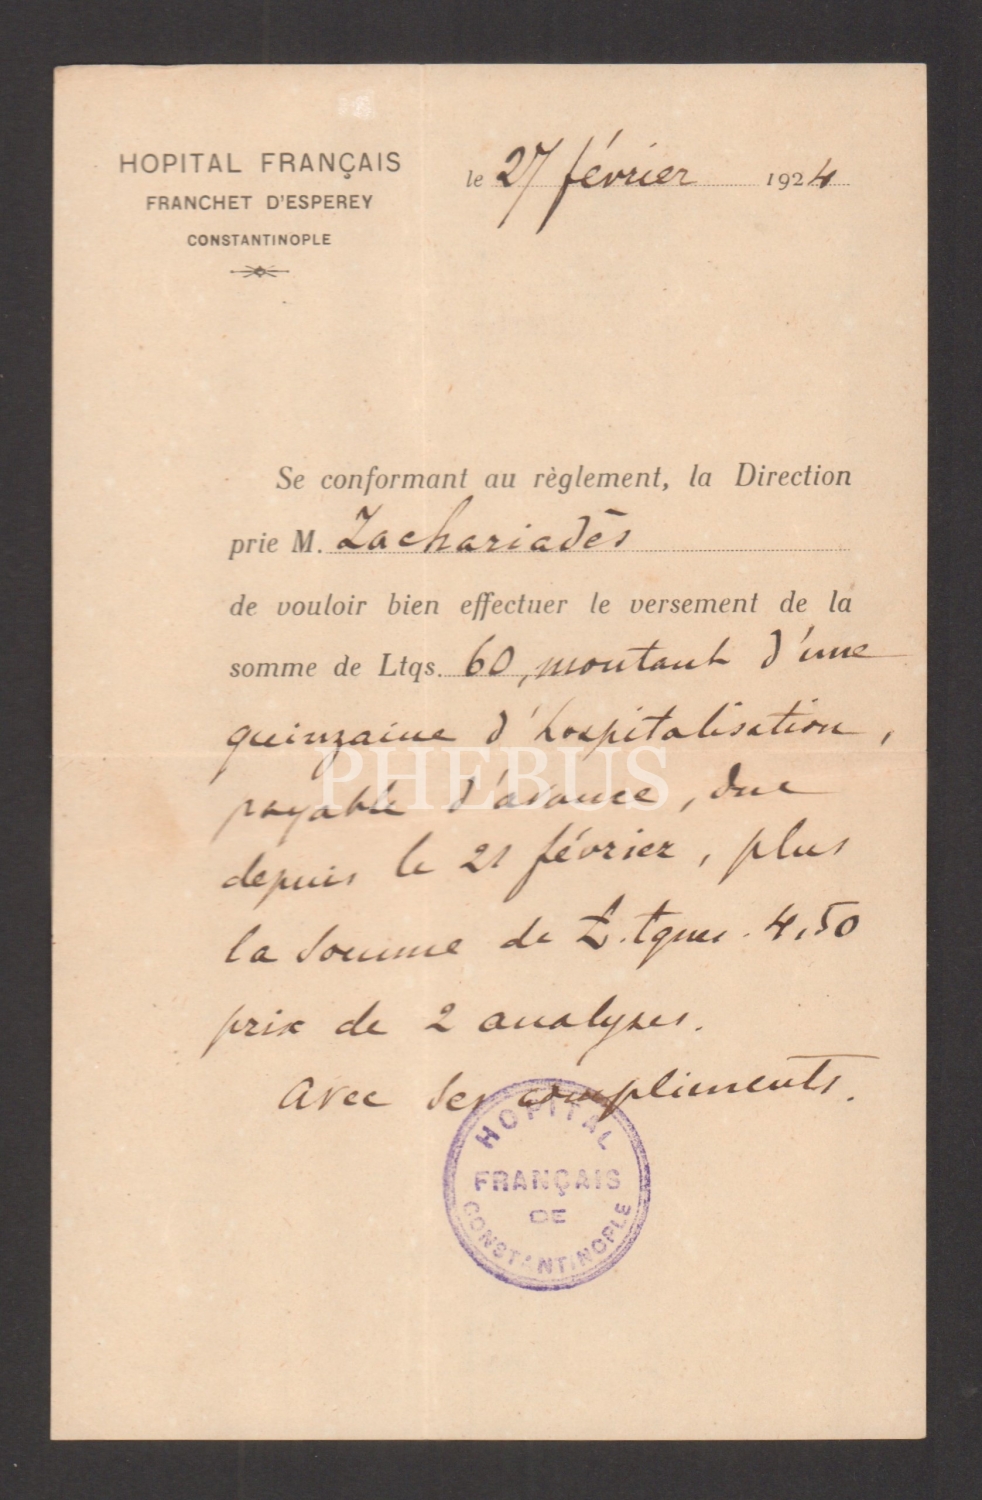 HOPITAL FRANÇAIS
FRANCHET D'ESPEREY
CONSTANTINOPLE
le 27 février 1924
Se conformant au règlement, la Direction
prie M. Zachariadès
de vouloir bien effectuer le versement de la
somme de Ltqs. 60, montant d'une
quinzaine d'hospitalisation,
payable d'avance, due
depuis le 21 février, plus
la somme de L.tques. 4,50
prix de 2 analyses.
Avec ses compliments.
HOPITAL
FRANÇAIS
DE
CONSTANTINOPLE
PHEBUS